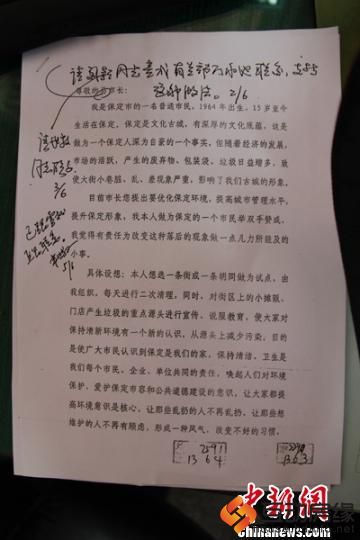 尊敬的
市长:
我是保定市的一名普通市民,1964年出生,15岁至今
生活在保定,保定是文化古城,有深厚的文化底蕴,这是
做为一个保定人深为自豪的一个事实,但随着经济的发展,
市场的活跃,产生的废弃物、包装袋、垃圾日益增多,致
使大街小巷脏、乱、差现象严重,影响了我们古城的形象。
目前市长您提出要优化保定环境,提高城市管理水平,
提升保定形象,我本人做为保定的一个市民举双手赞成,
我觉得有责任为改变这种落后的现象做一点儿力所能及的
小事。
具体设想:本人想选一条街或一条胡同做为试点,由
我组织,每天进行二次清理,同时,对街区上的小摊贩、
门店产生垃圾的重点源头进行宣传、说服教育,使大家对
保持清新环境有一个新的认识,从源头上减少污染,目的
是使广大市民认识到保定是我们的家,保持清洁、卫生是
我们每个市民、企业、单位共同的责任,唤起人们对环境
保护、爱护保定市容和公共道德建设的意识,让大家都提
高环境意识是核心,让那些乱扔的人不再乱扔,让那些想
维护的人不再有顾虑,形成一种风气,改变不好的习惯。
2/6
3/6
5/6
2291
13 6 4
13 6 3
中新网
chinanews.com